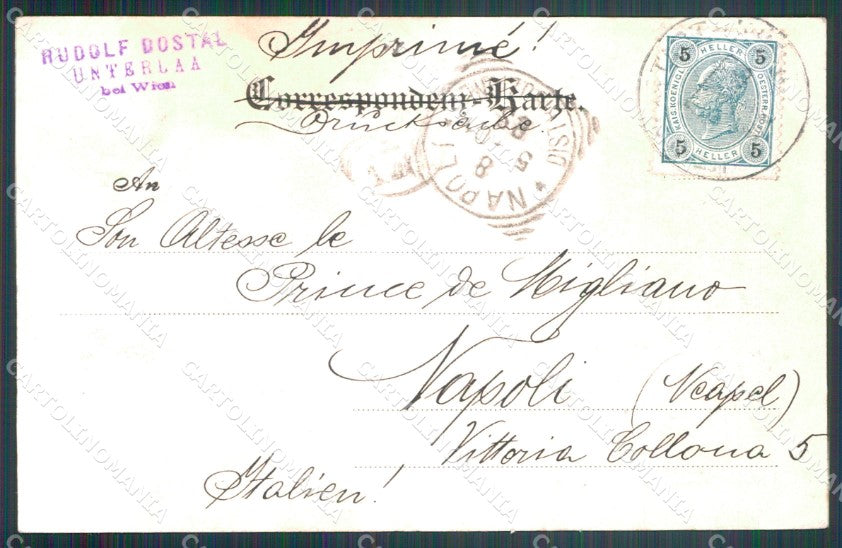 RUDOLF DOSTAL
UNTERLAA
bei Wien
Imprimé!
Correspondenz-Karte.
Drucksache.
5 HELLER 5
KAIS. KOENIGL.
OESTERR. POST
5 HELLER 5
NAPOLI
5
8
An
Son Altesse le
Prince de Migliano
Napoli (Neapel)
Vittoria Collona 5
Italien!
CARTOLINOMANIA